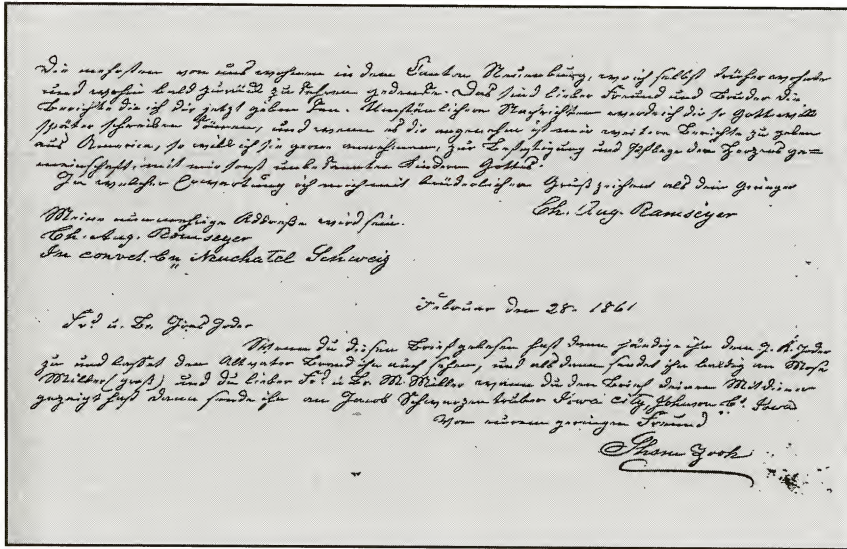 Die mehrsten von uns wohnen in dem Canton Neuenburg, wo ich selbst früher wohnte
und wohin bald zurück zu kehren gedenke. Das sind lieber Freund und Bruder die
Berichte die ich dir jetzt geben kan. Umständlichere Nachrichten werde ich dir so Gott will
später schreiben können, und wenn es dir angenehm ist mir weitere Berichte zu geben
aus America, so will ich sie gerne annehmen, zur Befestigung und Pflege der Herzens ge=
meinschaft, mit mir sonst unbekannten Kindern Gottes.
In welcher Erwartung ich mich mit brüderlichem Gruß zeichne als dein geringer
Ch. Aug. Ramseyer
Meine nunmehrige Addresse wird sein.
Ch. Aug. Ramseyer
Neuchatel Schweiz
Februar den 28. 1861
Frd u. Br. Joder
Wenn du diesen Brief gelesen hast dann händige ihn dem J. K. Joder
zu und lasset den Altvater ihn auch sehen, und alsdann sendet ihn baldig an Mose
Miller (groß) und du lieber Frd u Br. M. Miller wenn du den Brief deinen Mitdiener
gezeigt hast dann sende ihn an Jacob Schwarzentruber Iowa City Johnson Co. Iowa
Von eurem geringen Freund
Shem Zook